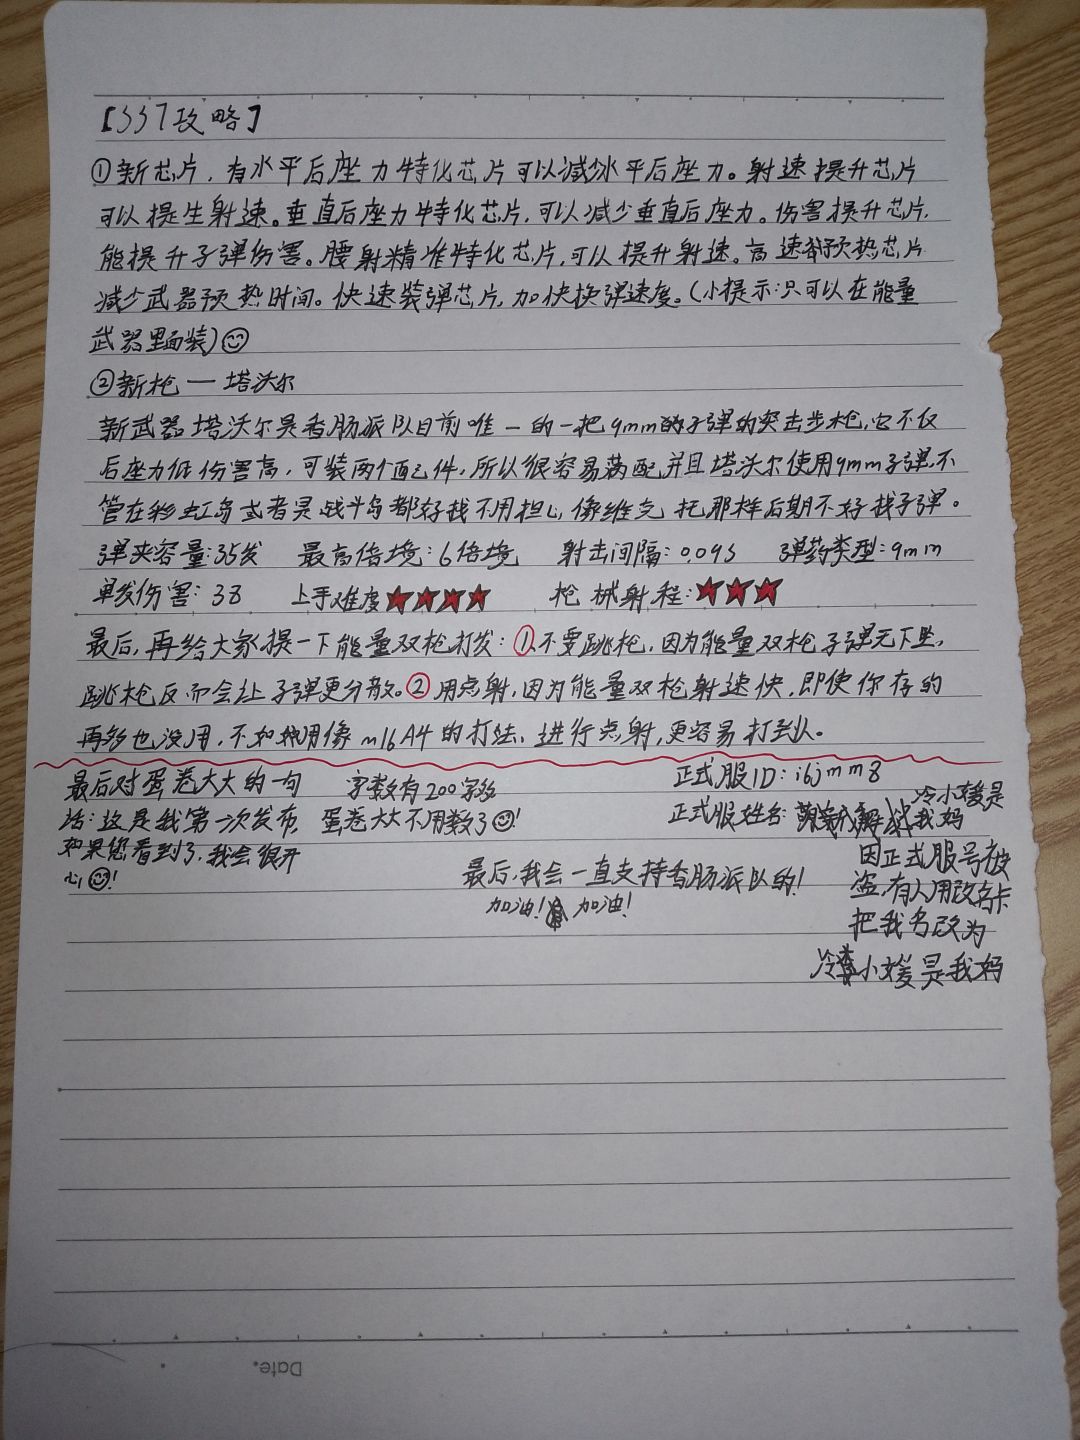 【337攻略】
①新芯片，有水平后座力特化芯片可以减少水平后座力。射速提升芯片
可以提生射速。垂直后座力特化芯片，可以减少垂直后座力。伤害提升芯片，
能提升子弹伤害。腰射精准特化芯片，可以提升射速。高速预热芯片
减少武器预热时间。快速装弹芯片，加快换弹速度。(小提示：只可以在能量
武器里面装)
②新枪一塔沃尔
新武器塔沃尔是香肠派队目前唯一的一把9mm的子弹的突击步枪，它不仅
后座力低伤害高，可装两个配件，所以很容易满配，并且塔沃尔使用9mm子弹，不
管在彩虹岛或者是战斗岛都好找不用担心，像维克托那样后期不好找子弹。
弹夹容量：35发 最高倍境：6倍境 射击间隔：0.09s 弹药类型：9mm
单发伤害：38 上手难度★★★★ 枪械射程：★★★
最后，再给大家提一下能量双枪打发：①不要跳枪，因为能量双枪子弹无下坠，
跳枪反而会让子弹更分散。②用点射，因为能量双枪射速快，即使你存的
再多也没用，不如用像m16A4的打法，进行点射，更容易打到人。
最后对蛋卷大大的一句
话：这是我第一次发布，
如果您看到了，我会很开
心!
字数有200字多
蛋卷大大不用数了!
最后，我会一直支持香肠派队的!
加油! 加油!
正式服ID：i6jmm8
正式服姓名： 冷小媛是
我妈
因正式服号被
盗，有人用改名卡
把我名改为
冷小媛是我妈
Date.